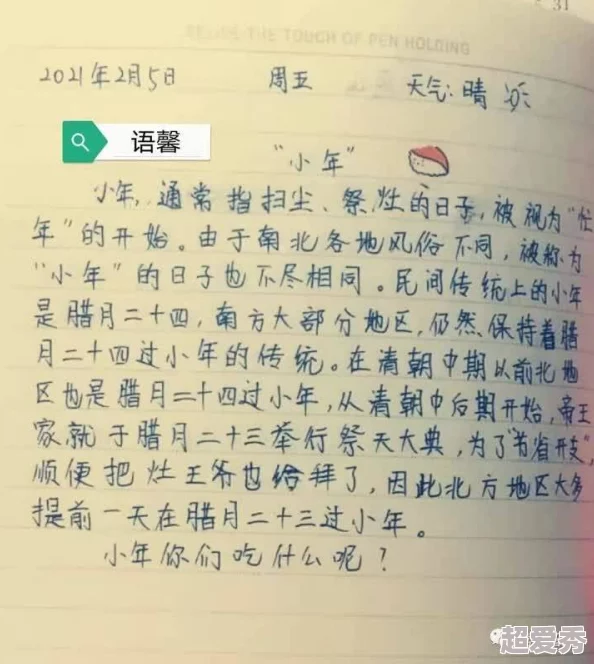 31
BESIDE THE TOUCH OF PEN HOLDING
2021年2月5日 周五 天气:晴
语馨
"小年"
小年,通常指扫尘、祭灶的日子,被视为"忙
年"的开始。由于南北各地风俗不同,被称为
"小年"的日子也不尽相同。民间传统上的小年
是腊月二十四,南方大部分地区,仍然保持着腊
月二十四过小年的传统。在清朝中期以前北地
区也是腊月二十四过小年,从清朝中后期开始,帝王
家就于腊月二十三举行祭天大典,为了"节省开支",
顺便把灶王爷也给拜了,因此北方地区大多
提前一天在腊月二十三过小年。
小年你们吃什么呢?
超爱秀